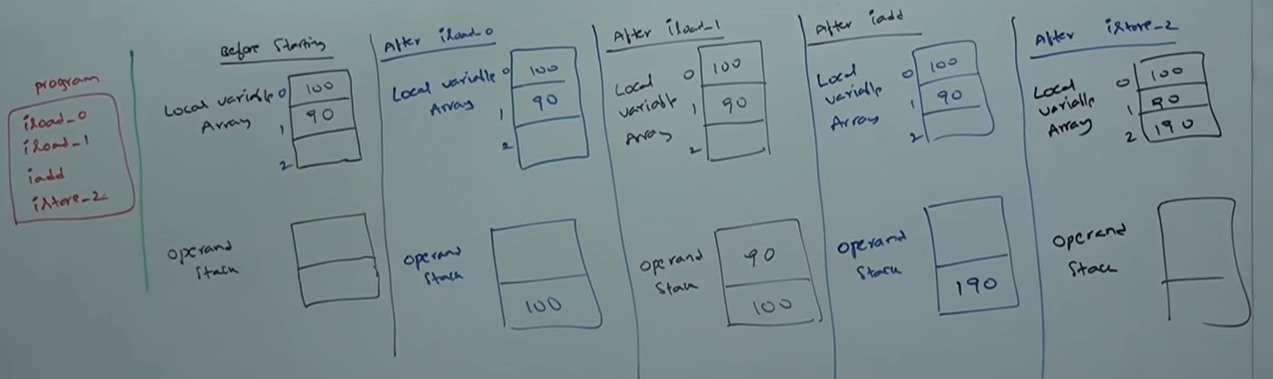 program
iload_0
iload_1
iadd
istore_2
Before Starting
Local variable
Array
0
100
1
90
2
Operand
Stack
After iload_0
Local variable
Array
0
100
1
90
2
Operand
Stack
100
After iload_1
Local
variable
Array
0
100
1
90
2
Operand
Stack
90
100
After iadd
Local
variable
Array
0
100
1
90
2
Operand
Stack
190
After istore_2
Local
variable
Array
0
100
1
90
2
190
Operand
Stack